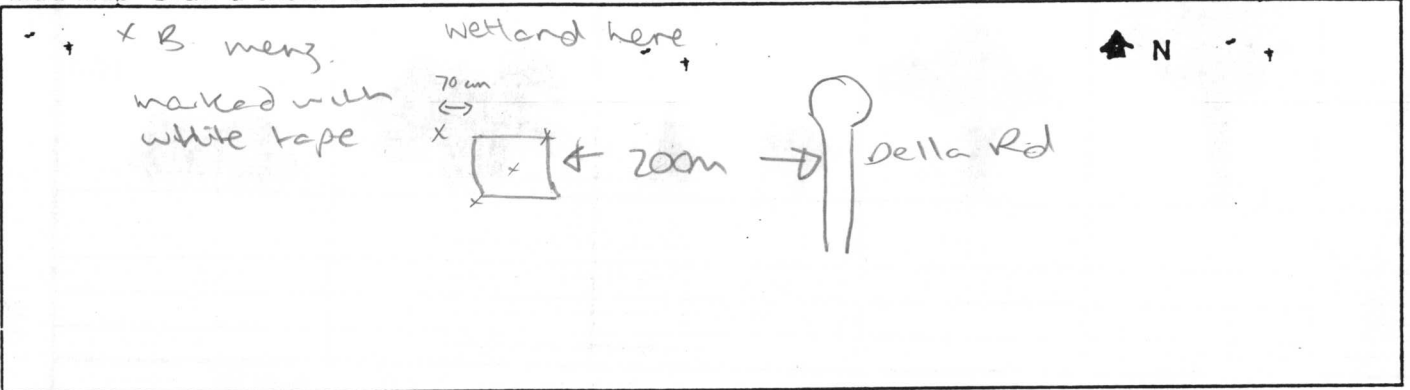 x B menz.
wetland here
N
marked with
white tape
70 cm
x
200m
Della Rd